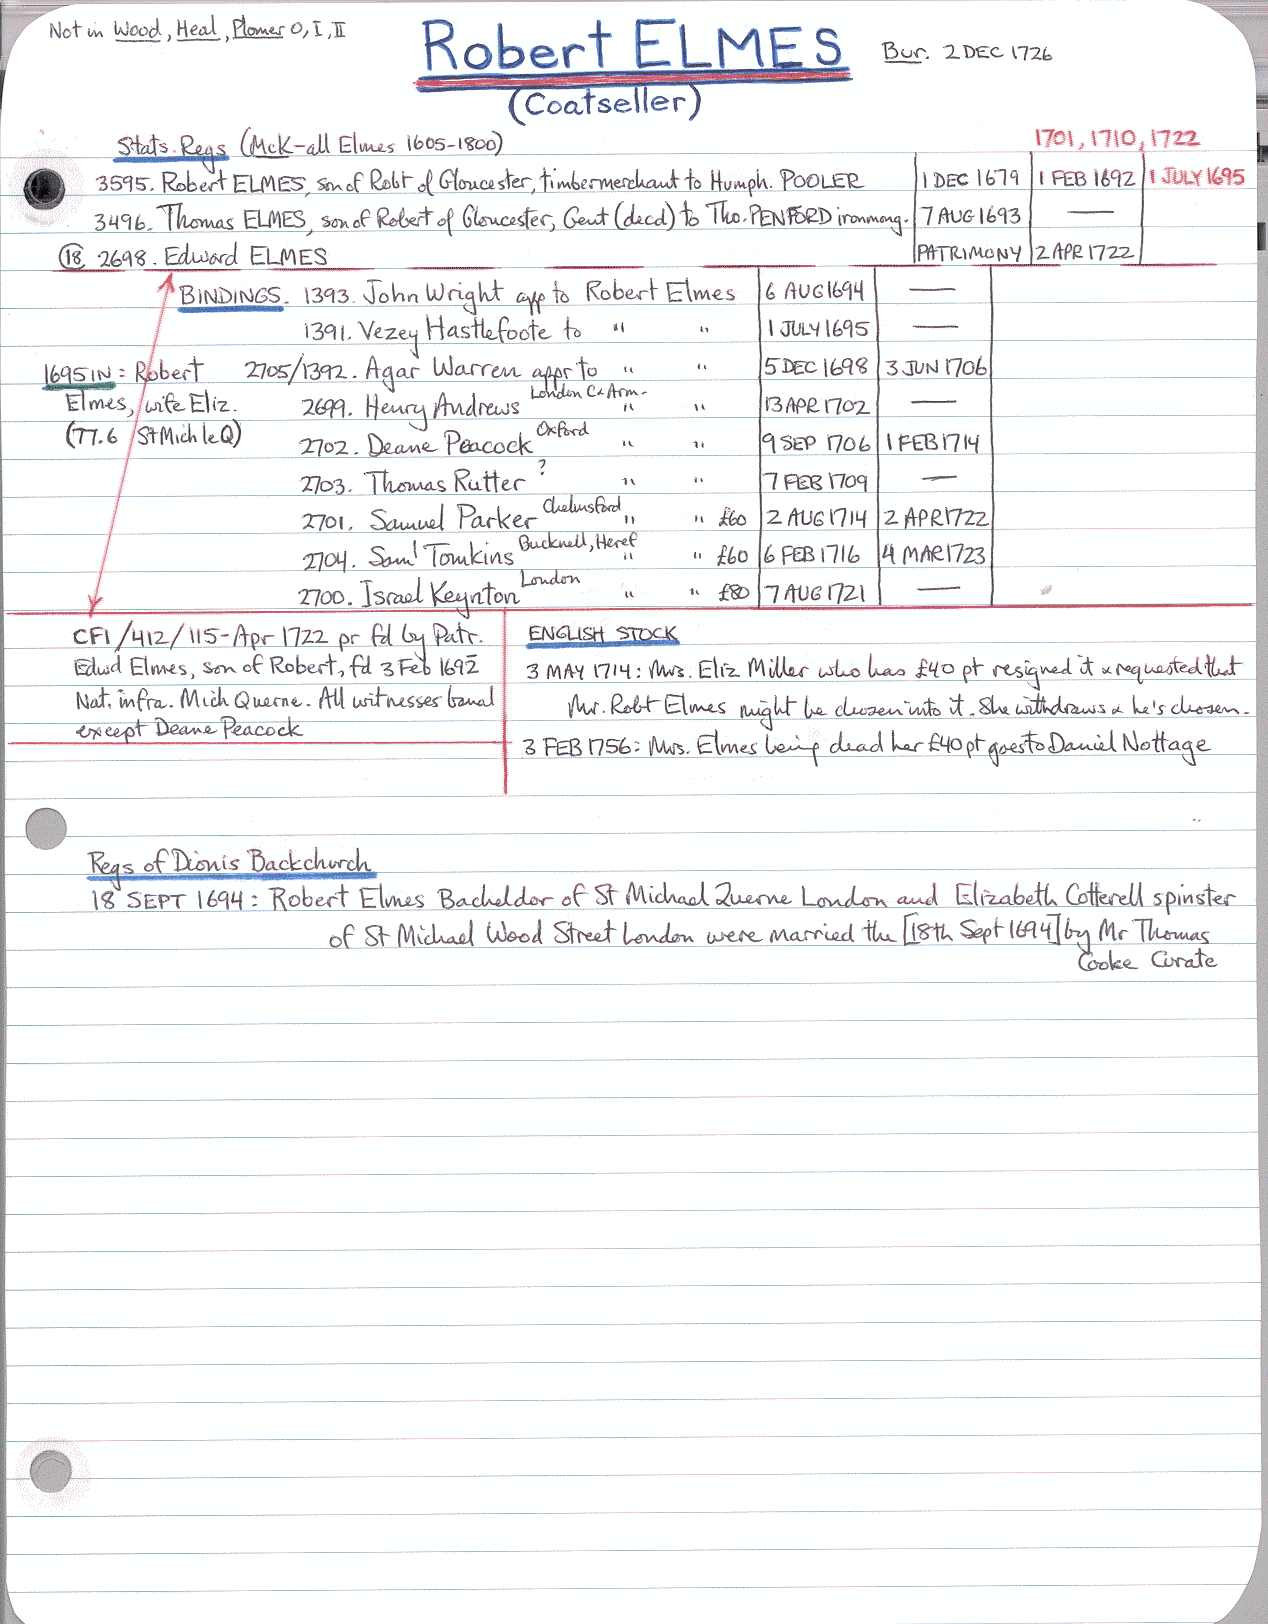 Not in Wood, Heal, Plomer O, I, II
Robert ELMES
Bur. 2 DEC 1726
(Coatseller)
Stats. Regs (McK-all Elmes 1605-1800)
1701, 1710, 1722
3595. Robert ELMES, son of Robt of Gloucester, timbermerchant to Humph. POOLER 1 DEC 1679 1 FEB 1692 1 JULY 1695
3496. Thomas ELMES, son of Robert of Gloucester, Gent (decd) to Tho. PENFORD ironmong. 7 AUG 1693 —
18 2698. Edward ELMES PATRIMONY 2 APR 1722
BINDINGS. 1393. John Wright app to Robert Elmes 6 AUG 1694 —
1391. Vezey Hastlefoote to " " 1 JULY 1695 —
1695 IN: Robert
Elmes, wife Eliz.
(77.6 St Mich le Q)
2705/1392. Agar Warren appr to " " 5 DEC 1698 3 JUN 1706
2699. Henry Andrews London C & Arm- " " 13 APR 1702 —
2702. Deane Peacock Oxford " " 9 SEP 1706 1 FEB 1714
2703. Thomas Rutter ? " " 7 FEB 1709 —
2701. Samuel Parker Chelmsford " " £60 2 AUG 1714 2 APR 1722
2704. Saml Tomkins Bucknell, Heref " " £60 6 FEB 1716 4 MAR 1723
2700. Israel Keynton London " " £80 7 AUG 1721 —
CF1/412/115-Apr 1722 pr fd by Patr.
Edwd Elmes, son of Robert, fd 3 Feb 1692
Nat. infra. Mich Querne. All witnesses banal
except Deane Peacock
ENGLISH STOCK
3 MAY 1714: Mrs. Eliz Miller who has £40 pt resigned it & requested that
Mr. Robt Elmes might be chosen into it. She withdraws & he's chosen.
3 FEB 1756: Mrs. Elmes being dead her £40 pt goes to Daniel Nottage
Regs of Dionis Backchurch
18 SEPT 1694: Robert Elmes Bacheldor of St Michael Querne London and Elizabeth Cotterell spinster
of St Michael Wood Street London were married the [18th Sept 1694] by Mr Thomas
Cooke Curate